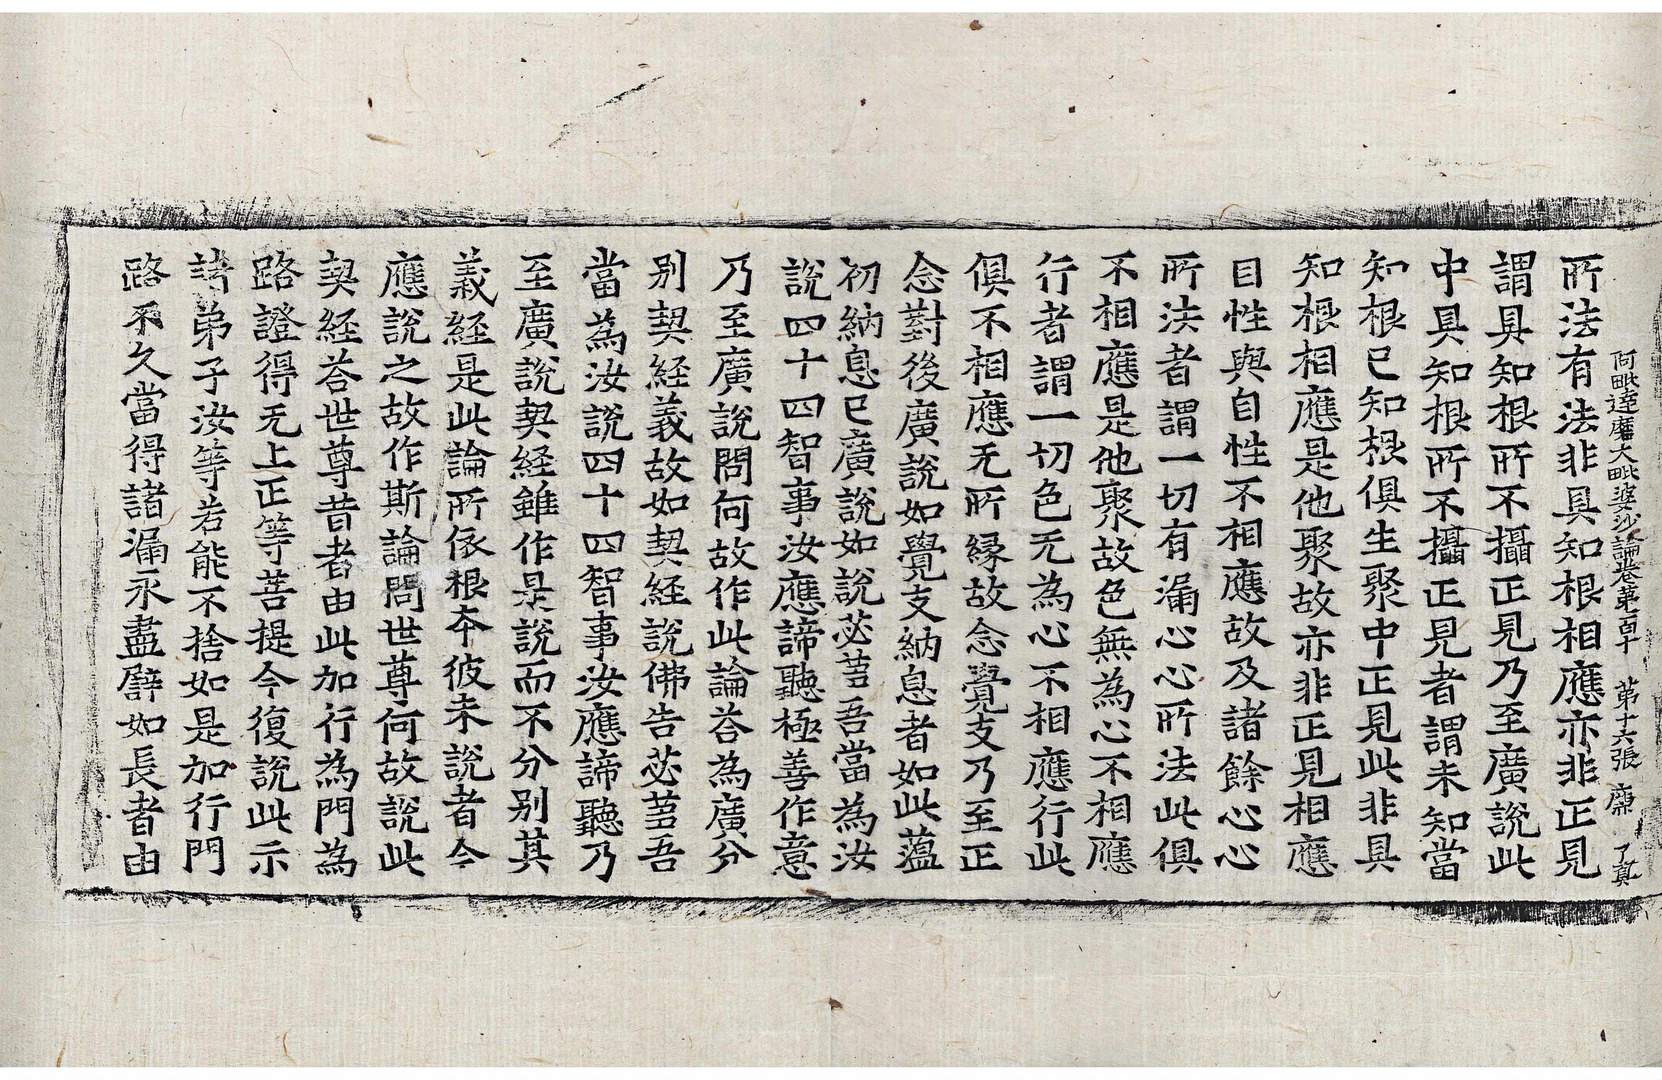 阿毗達磨大毗婆沙論卷第百十 第十六張 廉 了眞
所法有法非具知根相應亦非正見
謂具知根所不攝正見乃至廣說此
中具知根所不攝正見者謂未知當
知根已知根俱生聚中正見此非具
知根相應是他聚故亦非正見相應
自性與自性不相應故及諸餘心心
所法者謂一切有漏心心所法此俱
不相應是他聚故色無為心不相應
行者謂一切色无為心不相應行此
俱不相應无所緣故念覺支乃至正
念對後廣說如覺支納息者如此蘊
初納息已廣說如說苾芻吾當為汝
說四十四智事汝應諦聽極善作意
乃至廣說問何故作此論荅為廣分
別契経義故如契経說佛告苾芻吾
當為汝說四十四智事汝應諦聽乃
至廣說契経雖作是說而不分別其
義経是此論所依根本彼未說者今
應說之故作斯論問世尊何故說此
契経荅世尊昔者由此加行為門為
路證得无上正等菩提今復說此示
諸弟子汝等若能不捨如是加行門
路不久當得諸漏永盡譬如長者由